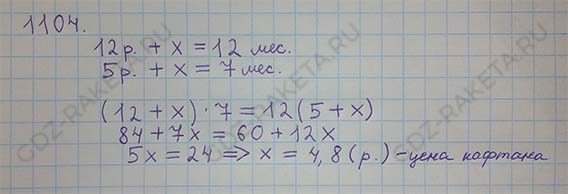 1104.
12р. + x = 12 мес.
5р. + x = 7 мес.
(12 + x) · 7 = 12(5 + x)
84 + 7x = 60 + 12x
5x = 24 => x = 4,8 (р.) - цена кафтана
GDZ-RAKETA.RU
GDZ-RAKETA.RU
GDZ-RAKETA.RU